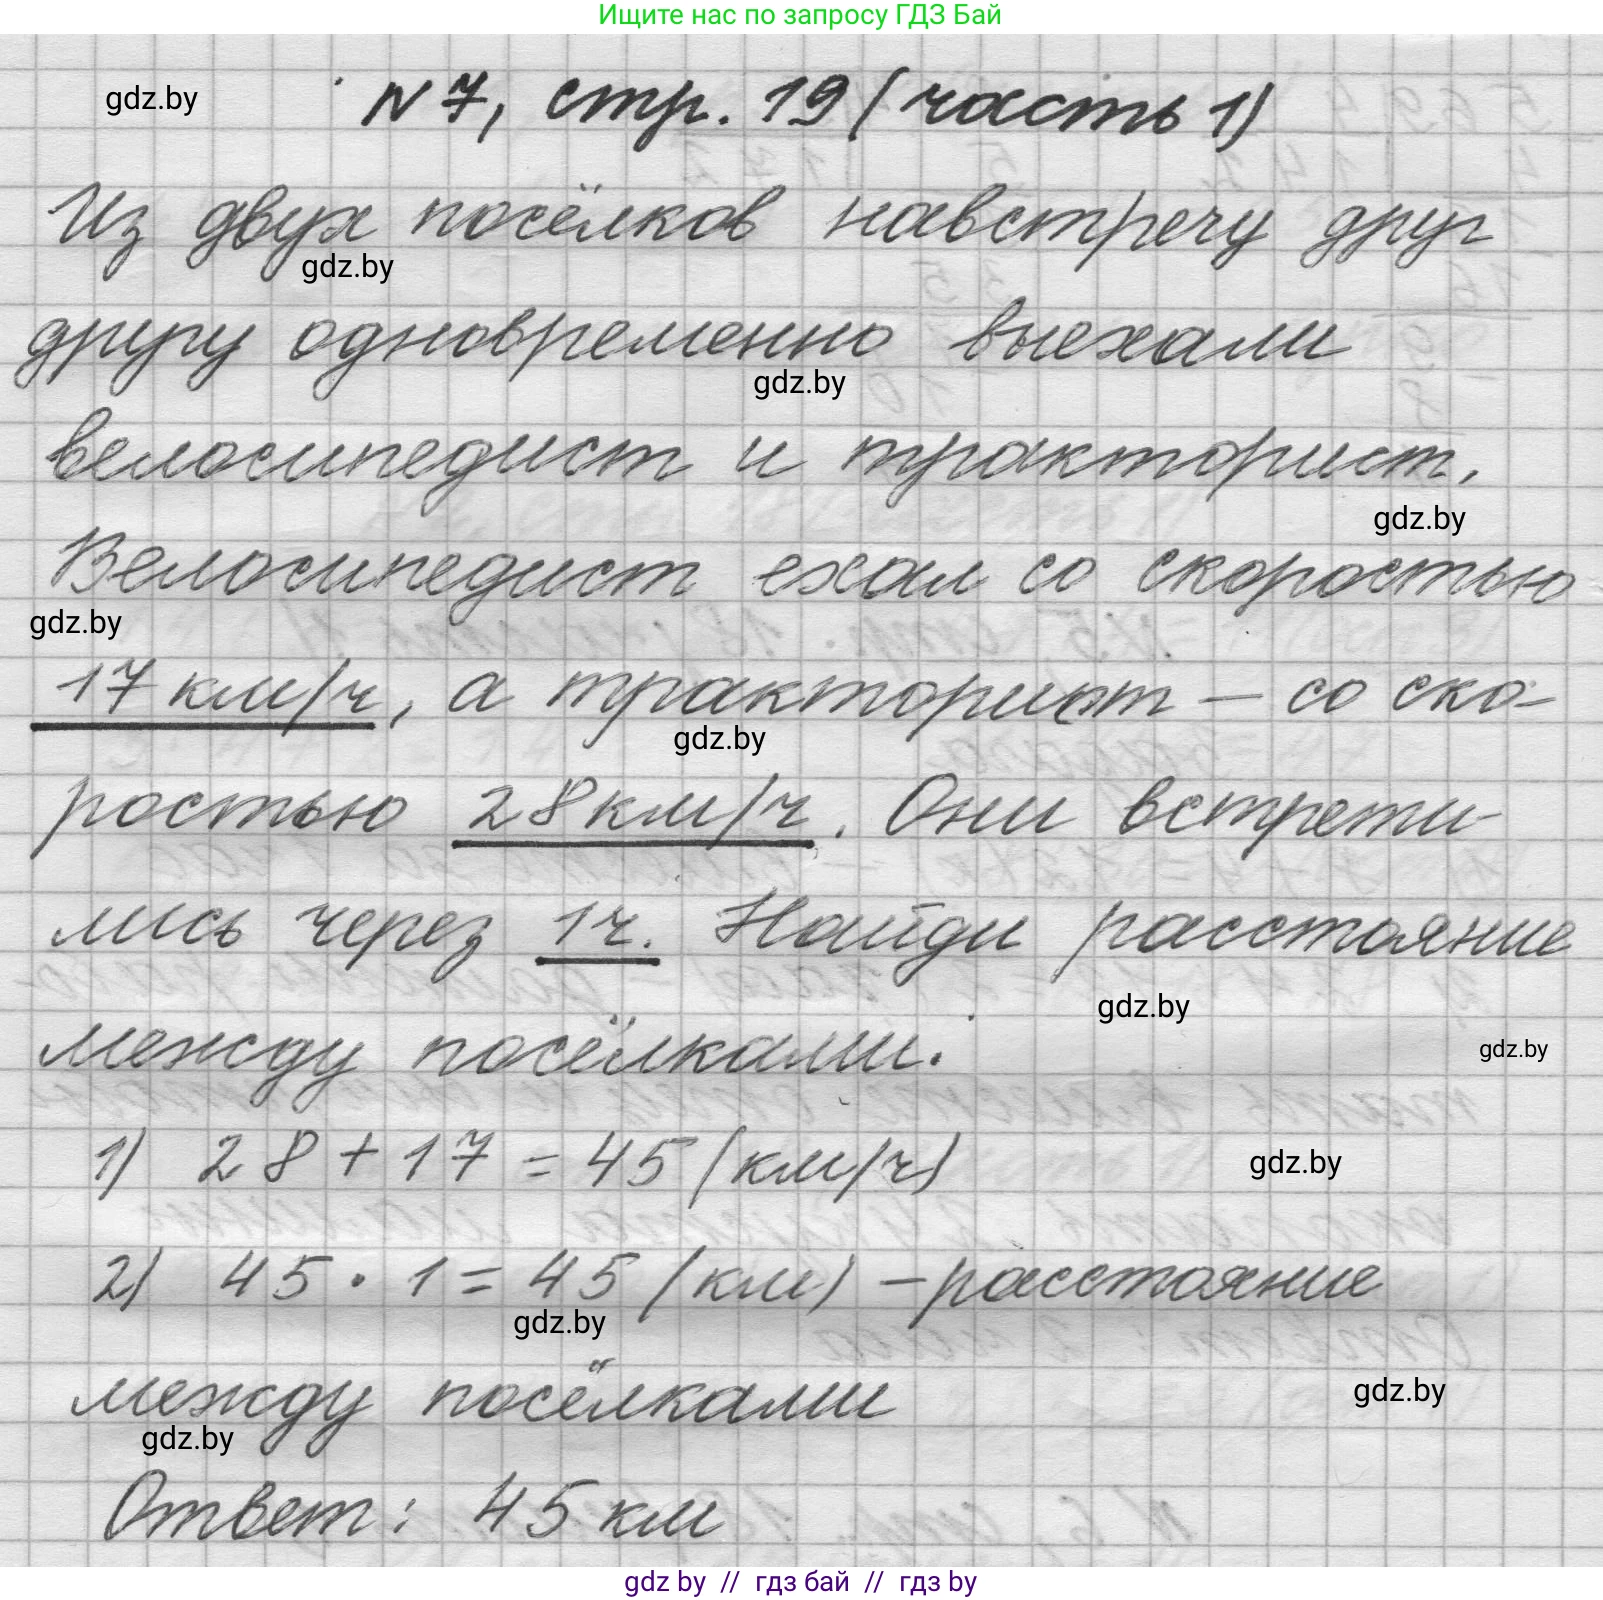 Ищите нас по запросу ГДЗ Бай
gdz.by
№7, стр. 19 (часть 1)
Из двух посёлков навстречу друг
gdz.by
другу одновременно выехали
gdz.by
велосипедист и тракторист.
gdz.by
Велосипедист ехал со скоростью
gdz.by
17 км/ч, а тракторист – со ско-
gdz.by
ростью 28 км/ч. Они встрети-
лись через 1ч. Найди расстояние
gdz.by
между посёлками.
gdz.by
1) 28 + 17 = 45 (км/ч)
gdz.by
2) 45 · 1 = 45 (км) – расстояние
gdz.by
между посёлками
gdz.by
gdz.by
Ответ: 45 км
gdz by // гдз бай // гдз by